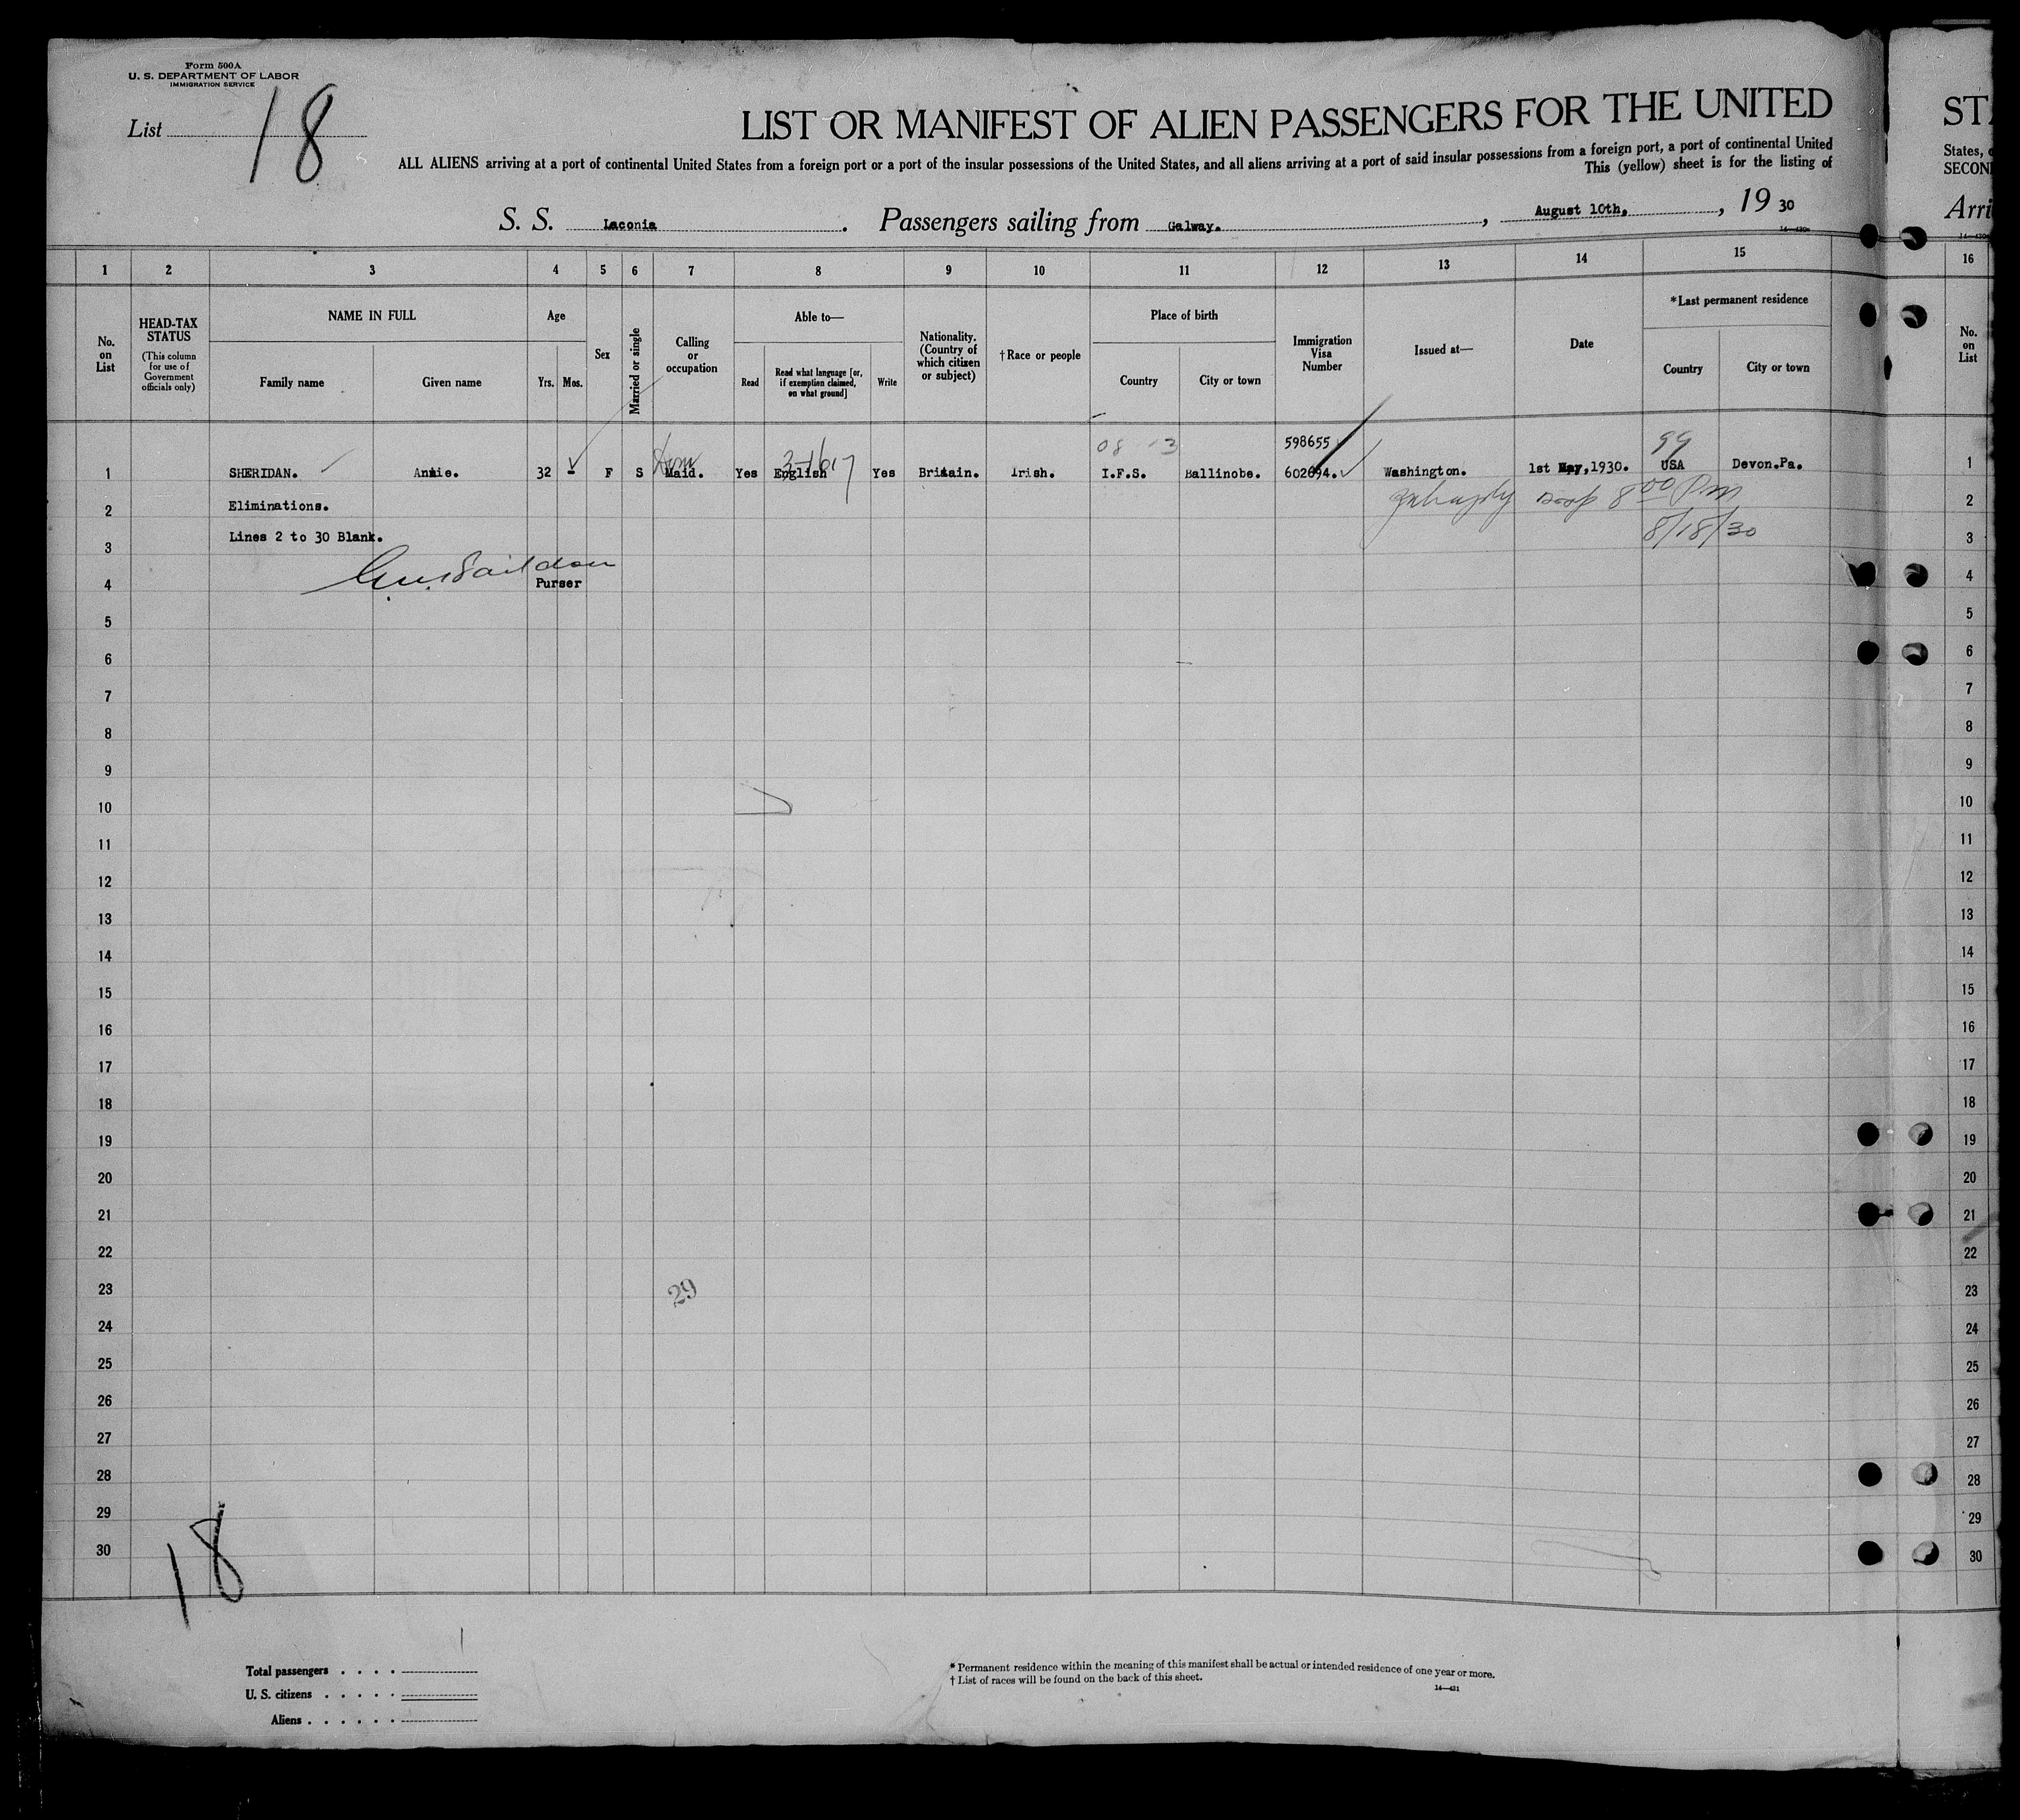 Form 500A
U. S. DEPARTMENT OF LABOR
IMMIGRATION SERVICE
List 18
LIST OR MANIFEST OF ALIEN PASSENGERS FOR THE UNITED
ALL ALIENS arriving at a port of continental United States from a foreign port or a port of the insular possessions of the United States, and all aliens arriving at a port of said insular possessions from a foreign port, a port of continental United
This (yellow) sheet is for the listing of
S. S. Laconia. Passengers sailing from Galway. , August 10th, , 19 30
14—430
STA
States,
SECON
Arri
1 2 3 4 5 6 7 8 9 10 11 12 13 14 15 16
No. on List
HEAD-TAX STATUS
(This column for use of Government officials only)
NAME IN FULL
Family name Given name
Age
Yrs. Mos.
Sex
Married or single
Calling or occupation
Able to—
Read
Read what language [or, if exemption claimed, on what ground]
Write
Nationality. (Country of which citizen or subject)
†Race or people
Place of birth
Country City or town
Immigration Visa Number
Issued at—
Date
*Last permanent residence
Country City or town
No. on List
08 -3 598655 99
1 SHERIDAN. Annie. 32 - F S Maid. Yes English Yes Britain. Irish. I.F.S. Ballinobe. 602694. Washington. 1st May, 1930. USA Devon.Pa. 1
2 Eliminations. 8 00 Pm 2
Lines 2 to 30 Blank. 8/18/30
3 3
4 Purser 4
5 5
6 6
7 7
8 8
9 9
10 10
11 11
12 12
13 13
14 14
15 15
16 16
17 17
18 18
19 19
20 20
21 21
22 22
23 29 23
24 24
25 25
26 26
27 27
28 28
29 29
30 30
18
1
Total passengers . . . .
U. S. citizens . . . . .
Aliens . . . . . .
* Permanent residence within the meaning of this manifest shall be actual or intended residence of one year or more.
† List of races will be found on the back of this sheet.
14—431